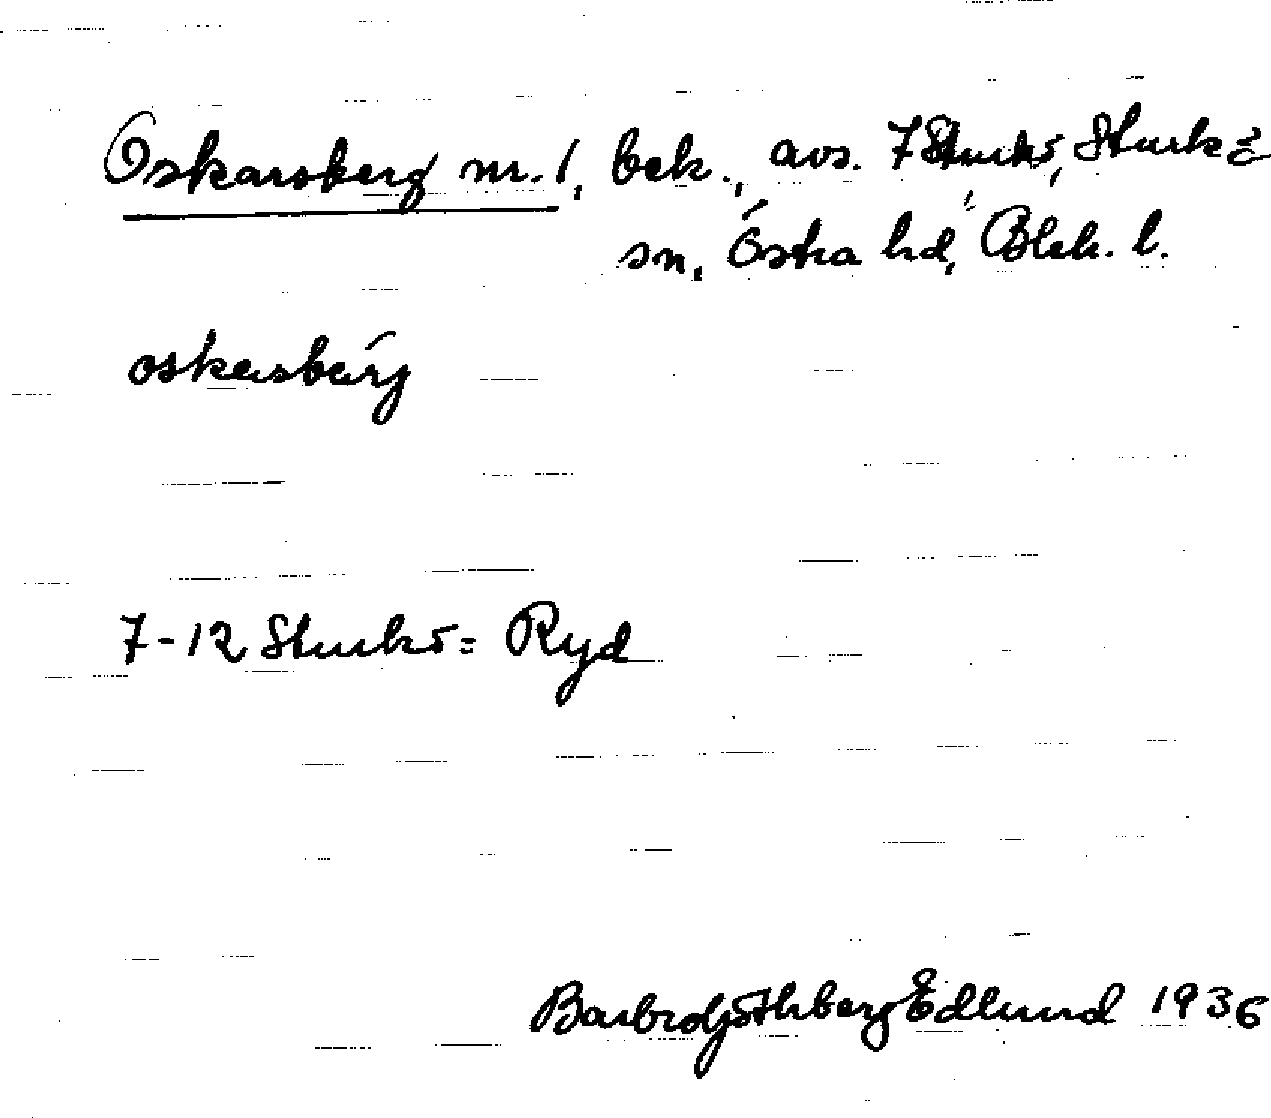 Oskarsberg nr. 1, bek., avs. 7 Sturkö, Sturkö
sn, Östra hd, Blek. l.
oskasbärg
7-12 Sturkö = Ryd
Barbro Göthberg Edlund 1936